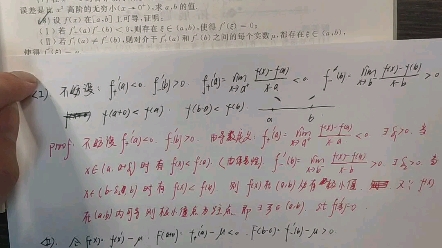 误差是比 x² 高阶的无穷小(x→0⁺), 求 a,b 的值.
设 f(x) 在 [a,b] 上可导, 证明:
(Ⅰ) 若 f₊'(a) f₋'(b) < 0, 则存在 ξ∈(a,b), 使得 f'(ξ) = 0;
(Ⅱ) 若 f₊'(a) ≠ f₋'(b), 则对介于 f₊'(a) 和 f₋'(b) 之间的每个实数 μ, 都存在 ξ∈(a,b),
使得 f'(ξ)=μ
(1) 不妨设: f₊'(a)<0. f₋'(b)>0. f₊'(a)= lim x→a⁺ f(x)-f(a) / x-a <0. f₋'(b)= lim x→b⁻ f(x)-f(b) / x-b >0
f(a+0) < f(a). f(b-0) < f(b)
a b
proof. 不妨设 f₊'(a)<0. f₋'(b)>0. 由导数定义: f₊'(a)= lim x→a⁺ f(x)-f(a) / x-a <0 ∃ δ₁>0. 当
x∈(a, a+δ₁) 时 有 f(x)<f(a). f₋'(b)= lim x→b⁻ f(x)-f(b) / x-b >0. ∃ δ₂>0 当
x∈(b-δ₂,b) 时 有 f(x)<f(b) 则 f(x) 在 (a,b) 极小值 又∵ f(x)
在 (a,b) 内可导 则极小值点为驻点 即 ∃ ξ∈(a,b). st f'(ξ)=0.
(2). F(x)= f(x)-μ F(a+0)= f₊'(a)-μ<0. F(b-0)= f₋'(b)-μ>0.